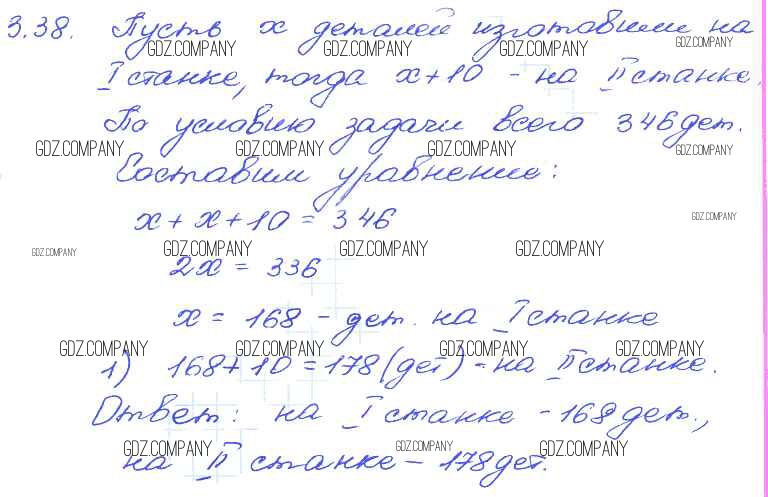 3.38. Пусть x деталей изготовили на
GDZ.COMPANY GDZ.COMPANY GDZ.COMPANY GDZ.COMPANY
I станке, тогда x+10 - на II станке.
По условию задачи всего 346 дет.
GDZ.COMPANY GDZ.COMPANY GDZ.COMPANY GDZ.COMPANY
Составим уравнение:
x + x + 10 = 346
GDZ.COMPANY
GDZ.COMPANY GDZ.COMPANY GDZ.COMPANY GDZ.COMPANY
2x = 336
x = 168 - дет. на I станке
GDZ.COMPANY GDZ.COMPANY GDZ.COMPANY GDZ.COMPANY
1) 168 + 10 = 178 (дет) - на II станке.
Ответ: на I станке - 168 дет.,
GDZ.COMPANY GDZ.COMPANY GDZ.COMPANY
на II станке - 178 дет.